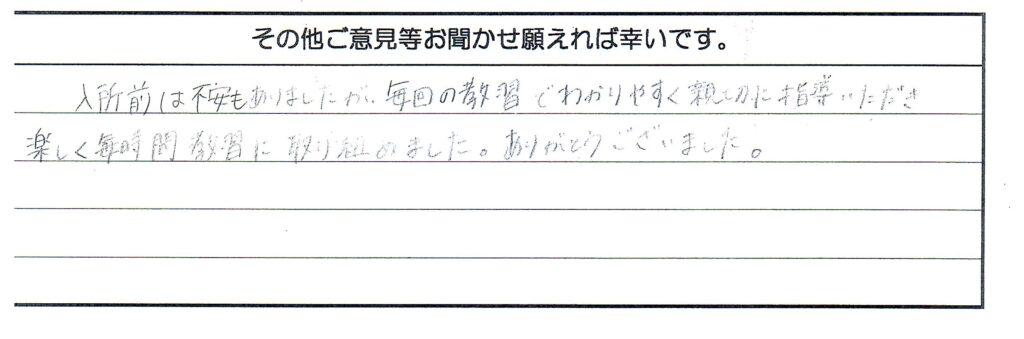 その他ご意見等お聞かせ願えれば幸いです。
入所前は不安もありましたが、毎回の教習でわかりやすく親切に指導いただき
楽しく毎時間教習に取り組めました。ありがとうございました。